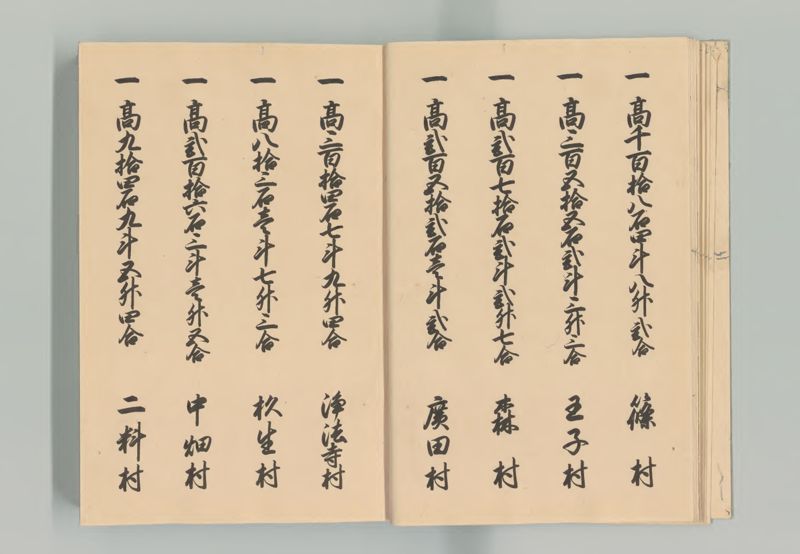 一 高千百拾八石四斗八升弐合 篠村
一 高三百五拾五石弐斗三升三合 王子村
一 高弐百七拾石弐斗弐升七合 森村
一 高弐百五拾弐石壱斗弐合 廣田村
一 高三百拾四石七斗九升四合 浄法寺村
一 高八拾三石壱斗七升三合 杦生村
一 高弐百拾六石三斗壱升五合 中畑村
一 高九拾四石九斗五升四合 二料村